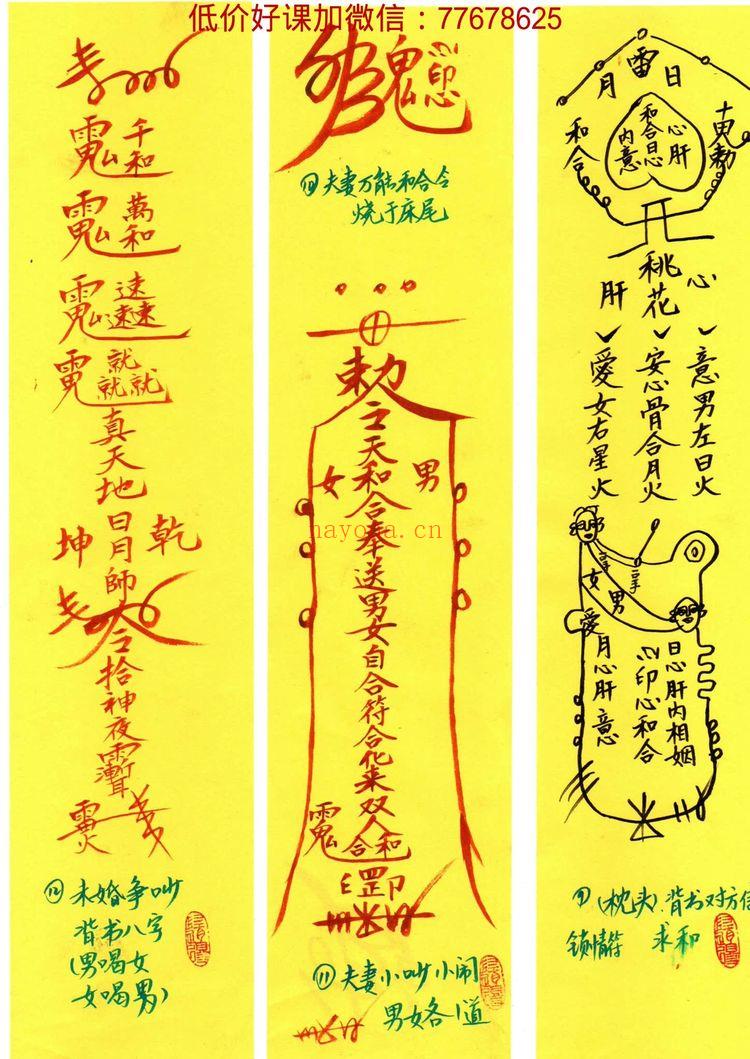 低价好课加微信：77678625
千和
萬和
速速速
就就就
真天地
日月師
乾
坤
拾神夜
⑫未婚争吵
背书八字
(男喝女
女喝男)
魁
印
⑩夫妻万能和合令
烧于床尾
敕
天和合奉送男女自合符合化来双人
男
女
和合
罡
⑪夫妻小吵小闹
男女各1道
hayoma.cn
日
雷
月
和合
心肝
和合日心
内意
敕
桃花
心
肝
意男左日火
安心骨合月火
愛女右星火
女
男
日心肝内相姻
印心和合
愛月心肝意
⑨(枕头)背书对方信
锁情符 求和